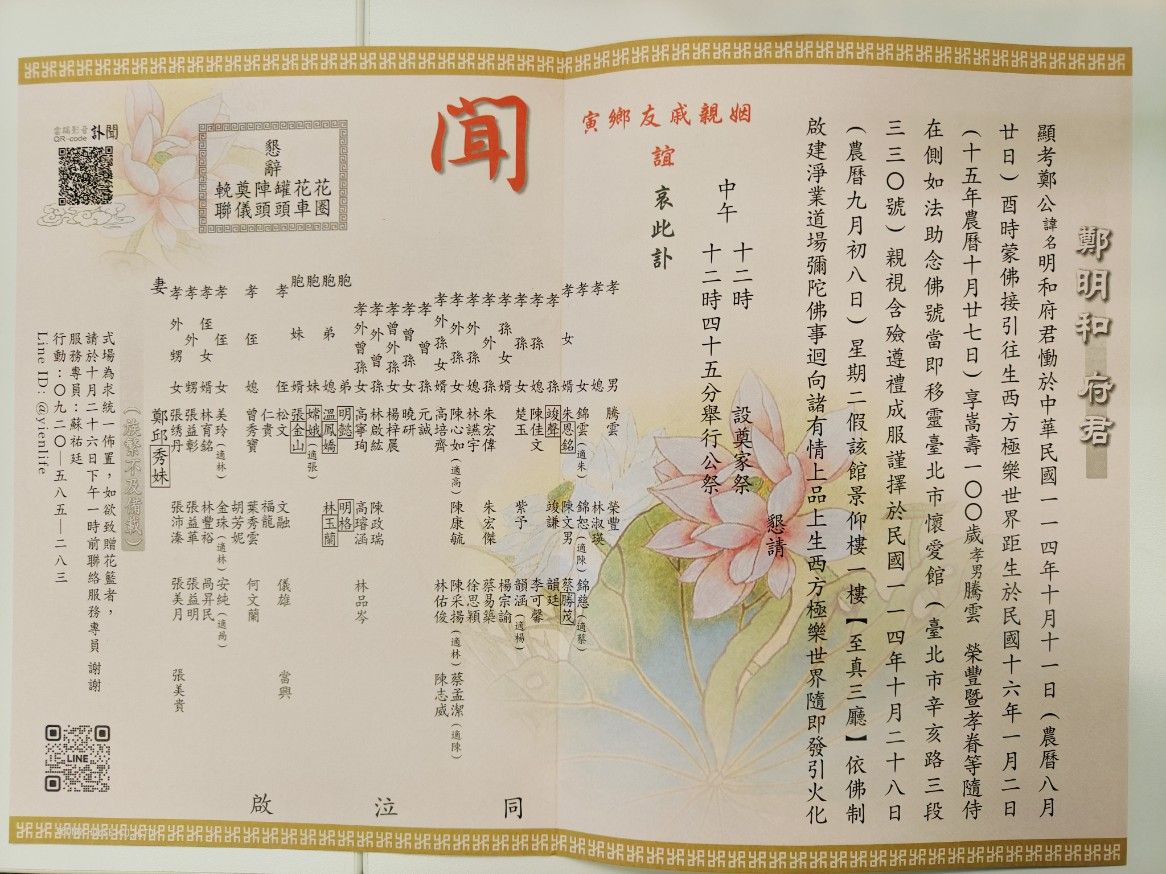 鄭明和 府君
顯考鄭公諱名明和府君慟於中華民國一一四年十月十一日(農曆八月
廿日)酉時蒙佛接引往生西方極樂世界距生於民國十六年一月二日
(十五年農曆十月廿七日)享嵩壽一〇〇歲孝男騰雲 榮豐暨孝眷等隨侍
在側如法助念佛號當即移靈臺北市懷愛館(臺北市辛亥路三段
三三〇號)親視含殮遵禮成服謹擇於民國一一四年十月二十八日
(農曆九月初八日)星期二假該館景仰樓一樓【至真三廳】依佛制
啟建淨業道場彌陀佛事迴向諸有情上品上生西方極樂世界隨即發引火化
懇請
十二時 設奠家祭
中午 十二時四十五分舉行公祭
姻親戚友鄉寅
誼
哀此訃
聞
孝男 騰雲 榮豐
孝媳 林淑瑛
孝女 錦雲(適朱) 錦恕(適陳) 錦慈(適蔡)
孝女婿 朱恩銘 陳文男 蔡勝茂
孝孫 竣聲 竣謙 韻廷
孝孫媳 陳佳文 李可馨
孝孫女 楚玉 紫予 韻涵(適楊)
孝孫婿 楊宗諭
孝外孫 朱宏偉 朱宏傑 蔡易築
孝外孫媳 林讌宇 徐思穎
孝外孫女 陳心如(適高) 陳康毓 陳采揚(適林) 蔡孟潔(適陳)
孝外孫婿 高培齊 林佑俊 陳志威
孝曾孫 元誠
孝曾孫女 曉研
孝曾外孫 楊梓晨
林啟紘 陳政瑞 林品岑
孝曾外孫女 高寧珣 高瑢涵
胞弟 明懿 明格
胞弟媳 溫鳳嬌 林玉蘭
胞妹 嫦娥(適張)
胞妹婿 張金山
孝姪 松文 文融 儀雄 當興
仁貴 福龍
孝姪媳 曾秀寶 葉秀雲 何文蘭
胡芳妮
孝姪女 美玲(適林) 金珠(適林) 安純(適咼)
孝姪女婿 林育銘 林豐裕 咼昇民
孝外甥 張益彰 張益華 張益明
孝外甥女 張琇丹 張沛溱 張美月 張美貴
妻 鄭邱秀妹
同 泣 啟
(族繁不及備載)
懇
辭
花圈
花車
罐頭
陣頭
奠儀
輓聯
訃聞
雲端影音
QR-code
式場為求統一佈置,如欲致贈花籃者,
請於十月二十六日下午一時前聯絡服務專員 謝謝
服務專員:蘇祐廷
行動:〇九二〇—五八五—二八三
Line ID: @yienlife
LINE